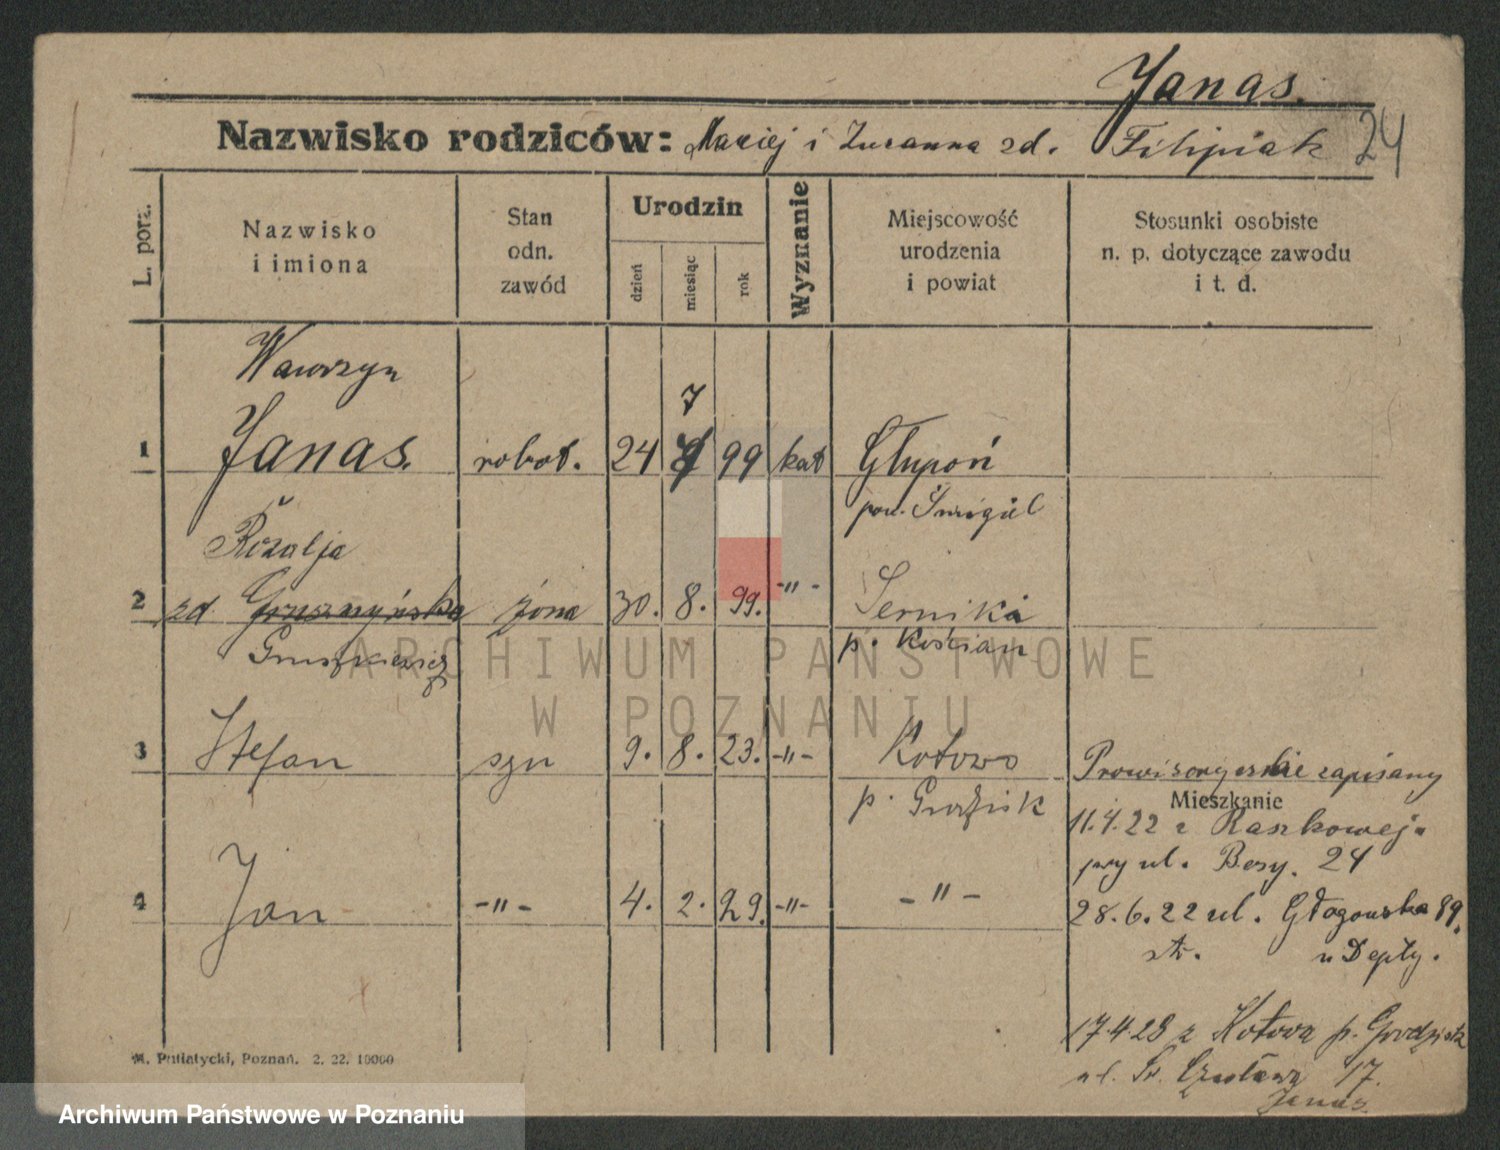 Janas.
Nazwisko rodziców: Maciej i Zuzanna zd. Filipiak 24
L. porz.
Nazwisko
i imiona
Stan
odn.
zawód
Urodzin
dzień
miesiąc
rok
Wyznanie
Miejscowość
urodzenia
i powiat
Stosunki osobiste
n. p. dotyczące zawodu
i t. d.
Wawrzyn
7
1 Janas. robot. 24 99 kat Głupoń
pow. Śmigiel
Rozalja
2 zd. Gruszczyńska żona 30. 8. 99. -"- Serniki
Gruszkiewicz p. Kościan
ARCHIWUM PAŃSTWOWE
W POZNANIU
3 Stefan syn 9. 8. 23. -"- Kotowo Prowizorycznie zapisany
p. Grodzisk
Mieszkanie
11.4.22 z Raszkowej
przy ul. 24
4 Jan -"- 4. 2. 29. -"- -"-
28.6.22 ul. Głogowska 89.
str. u Depty.
17.4.28 z Kotowa p. Grodzisk
ul. Św. Czesława 17.
Janas.
M. Putiatycki, Poznań. 2. 22. 10000
Archiwum Państwowe w Poznaniu